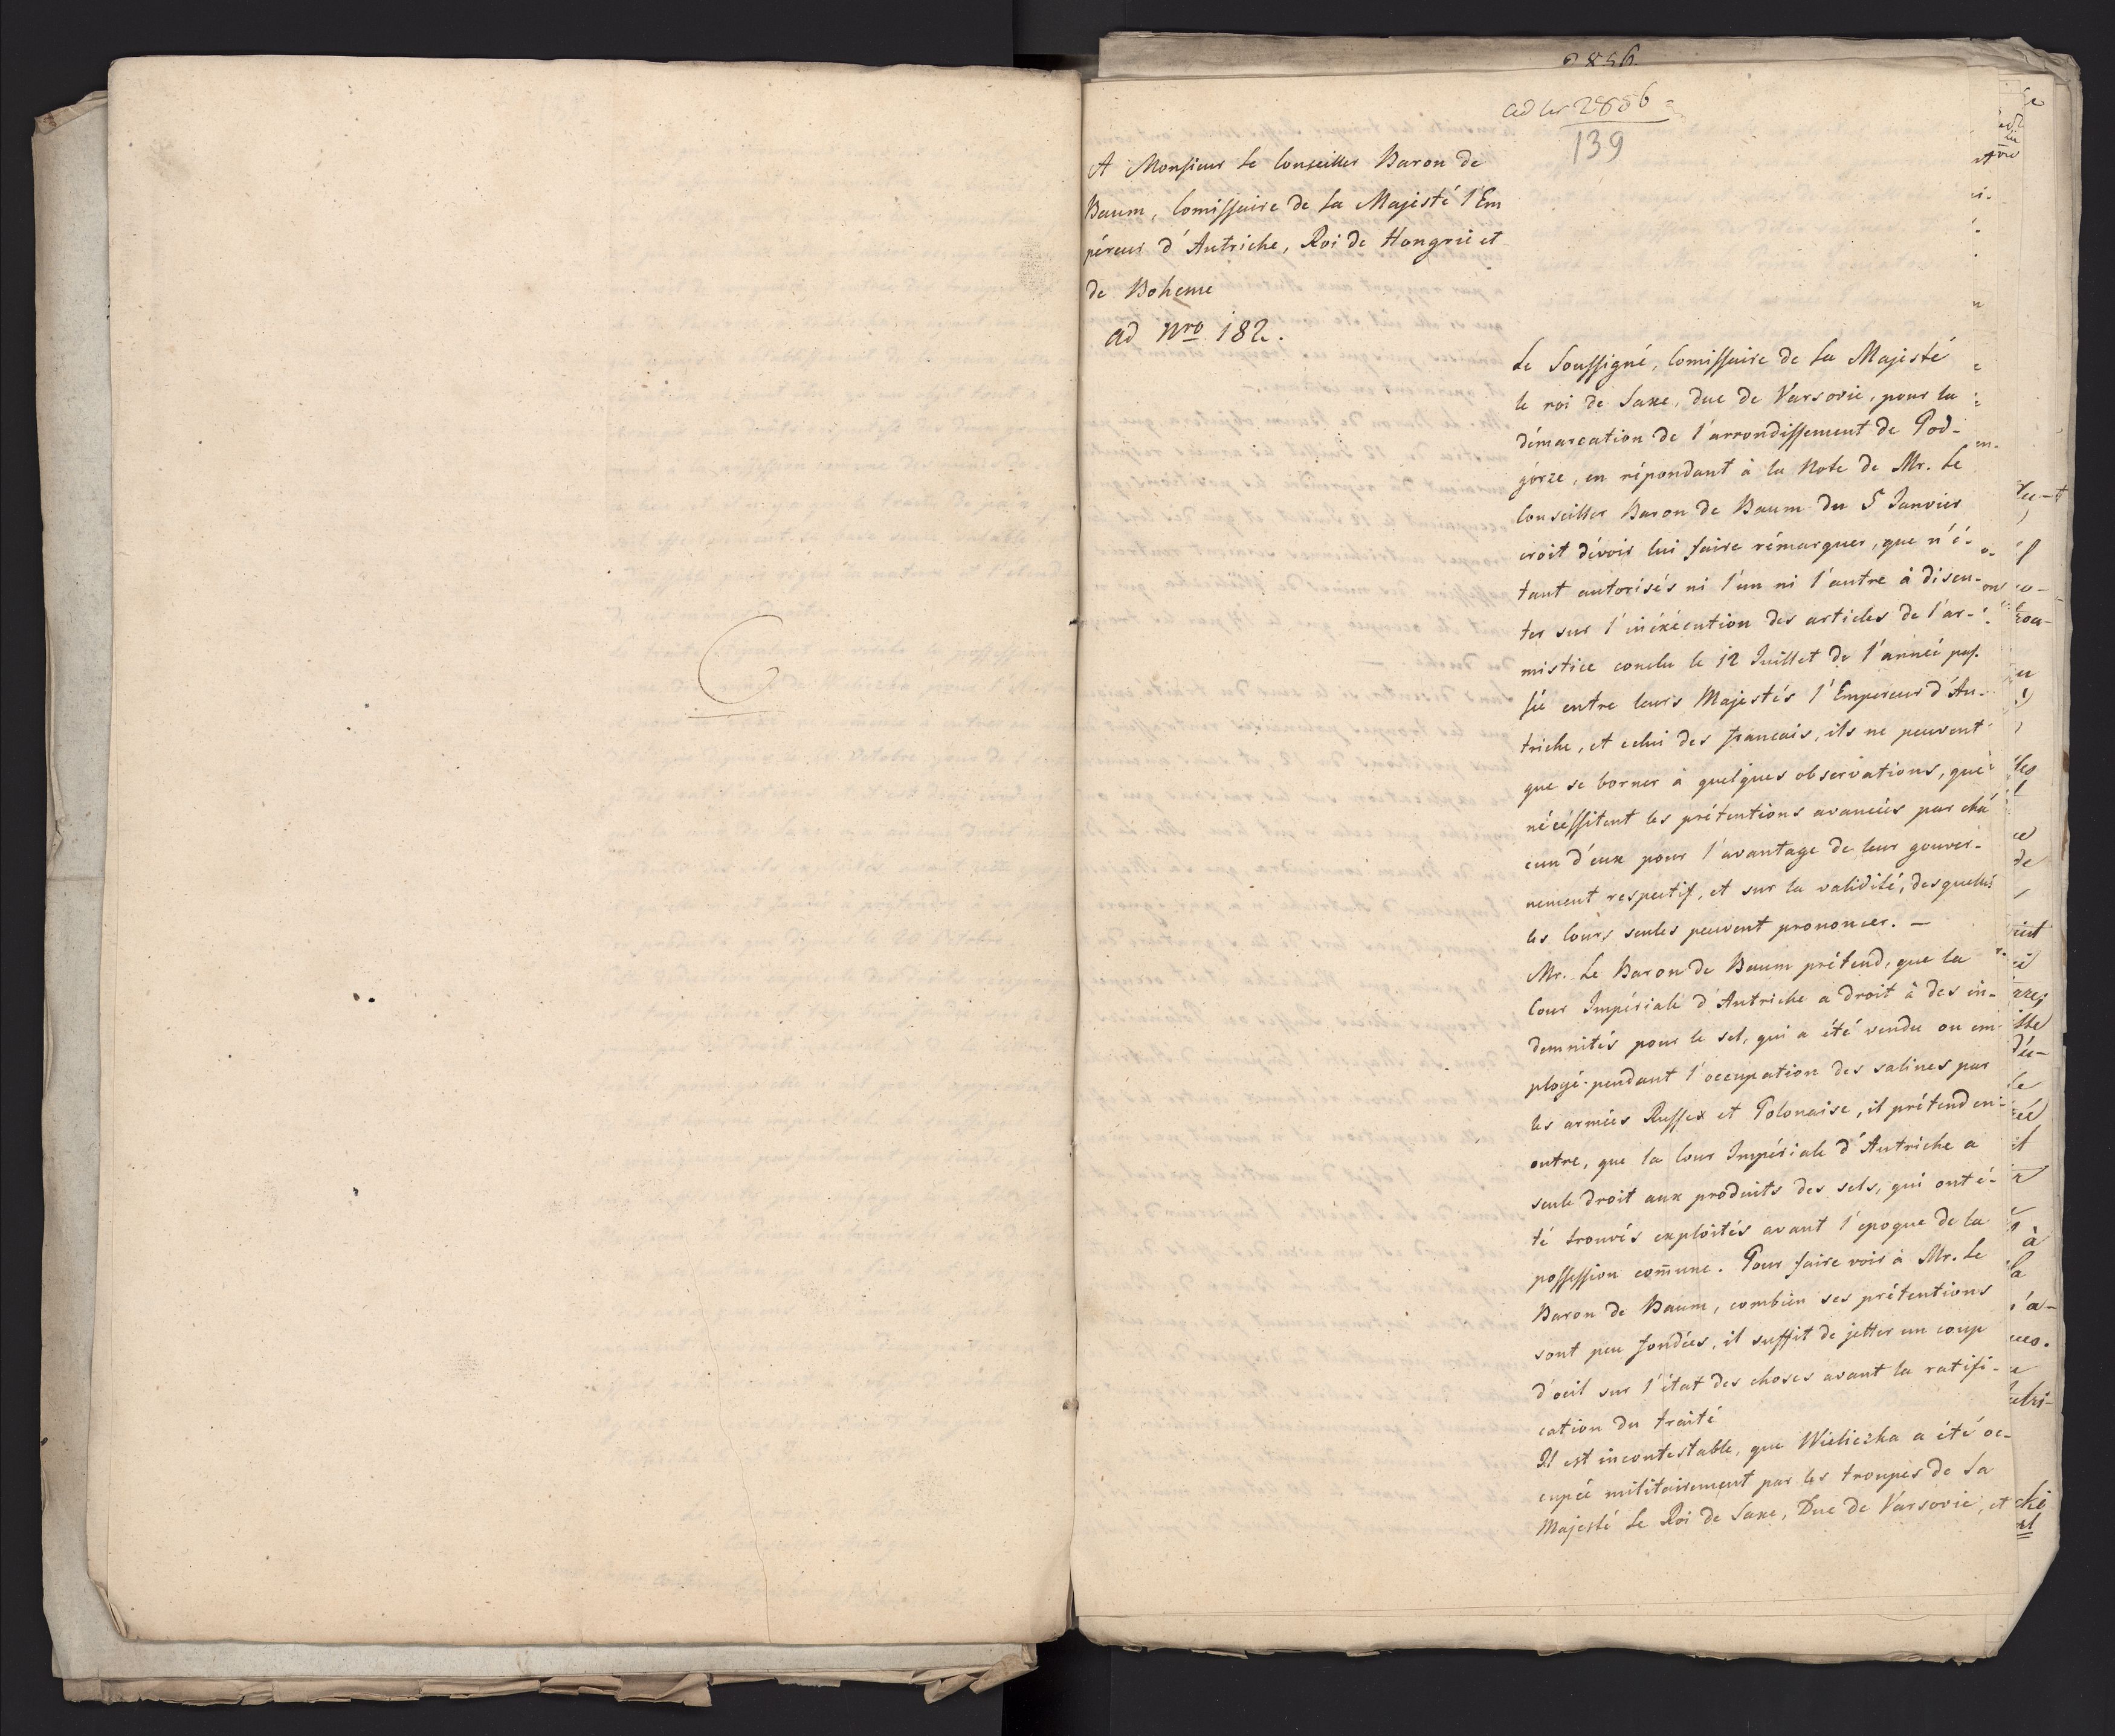 2856
ad les 2856
139
A Monsieur Le Conseiller Baron de
Baum, Comissaire de Sa Majesté l'Em
péreur d'Autriche, Roi de Hongrie et
de Boheme
ad Nro 182.
Le Soussigné, Comissaire de Sa Majesté
le roi de Saxe, Duc de Varsovie, pour la
démarcation de l'arrondissement de Pod-
górze, en répondant à la Note de Mr. Le
Conseiller Baron de Baum du 5 Janvier
croit dévoir lui faire rémarquer, que n'é-
tant autorisés ni l'un ni l'autre à discu-
ter sur l'inéxécution des articles de l'ar-
mistice conclu le 12 Juillet de l'anneé pas-
sée entre leurs Majestés l'Empereur d'Au-
triche, et celui des francais, ils ne peuvent
que se borner à quelques observations, que
nécéssitent les prétentions avancées par cha
cun d'eux pour l'avantage de leur gouver-
nement respectif, et sur la validité, desquelles
les Cours seules peuvent prononcer. —
Mr. Le Baron de Baum prétend, que la
Cour Impériale d'Autriche a droit à des in-
demnités pour le sel, qui a été vendu ou em-
ployé pendant l'occupation des salines par
les armées Russes et Polonaise, il prétend en-
outre, que la Cour Impériale d'Autriche a
seule droit aux produits des sels, qui ont é-
té trouvés exploités avant l'epoque de la
possession comune. Pour faire voir à Mr. Le
Baron de Baum, combien ses prétentions
sont peu fondées, il suffit de jetter un coup
d'oeil sur l'état des choses avant la ratifi-
cation du traité
Il est incontestable, que Wieliczka a été oc-
cupée militairement par les troupes de Sa
Majesté Le Roi de Saxe, Duc de Varsovie, et